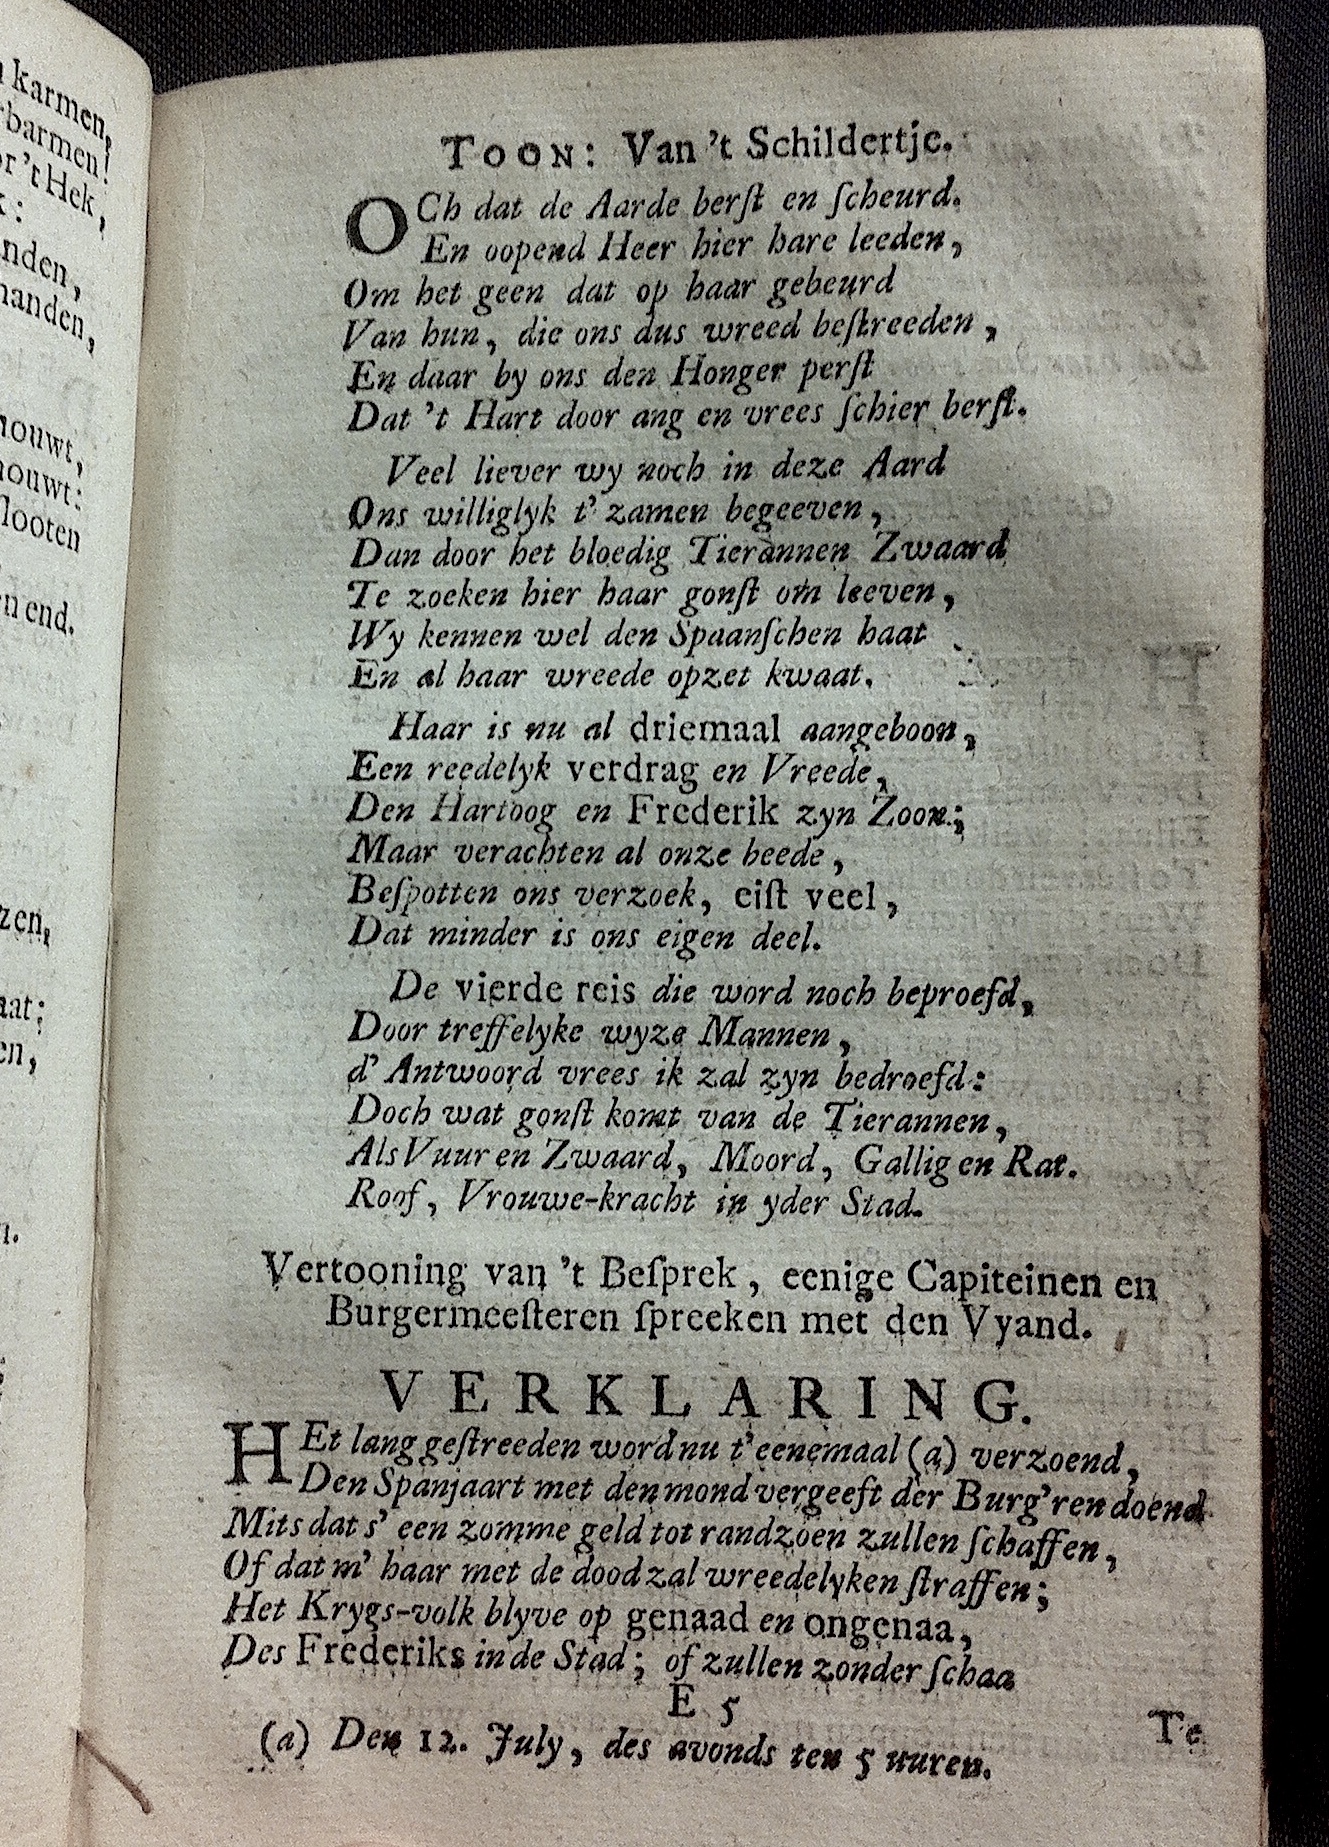 n karmen,
rbarmen!
or 't Hek,
k:
nden,
handen,
houwt,
houwt:
slooten
en end.
zen,
aat;
en,
n.
TOON: Van 't Schildertje.
OCh dat de Aarde berſt en ſcheurd.
En oopend Heer hier hare leeden,
Om het geen dat op haar gebeurd
Van hun, die ons dus wreed beſtreeden,
En daar by ons den Honger perſt
Dat 't Hart door ang en vrees ſchier berſt.
Veel liever wy noch in deze Aard
Ons williglyk t' zamen begeeven,
Dan door het bloedig Tierannen Zwaard
Te zoeken hier haar gonſt om leeven,
Wy kennen wel den Spaanſchen haat
En al haar wreede opzet kwaat.
Haar is nu al driemaal aangeboon,
Een reedelyk verdrag en Vreede,
Den Hartoog en Frederik zyn Zoon;
Maar verachten al onze beede,
Beſpotten ons verzoek, eiſt veel,
Dat minder is ons eigen deel.
De vierde reis die word noch beproefd,
Door treffelyke wyze Mannen,
d' Antwoord vrees ik zal zyn bedroefd:
Doch wat gonſt komt van de Tierannen,
Als Vuur en Zwaard, Moord, Gallig en Rat.
Roof, Vrouwe-kracht in yder Stad.
Vertooning van 't Beſprek, eenige Capiteinen en
Burgermeeſteren ſpreeken met den Vyand.
VERKLARING.
HEt lang geſtreeden word nu t'eenemaal (a) verzoend,
Den Spanjaart met den mond vergeeft der Burg'ren doend
Mits dat s' een zomme geld tot randzoen zullen ſchaffen,
Of dat m' haar met de dood zal wreedelyken ſtraffen;
Het Krygs-volk blyve op genaad en ongenaa,
Des Frederiks in de Stad; of zullen zonder ſchaa
E 5
Te
(a) Den 12. July, des avonds ten 5 uuren.